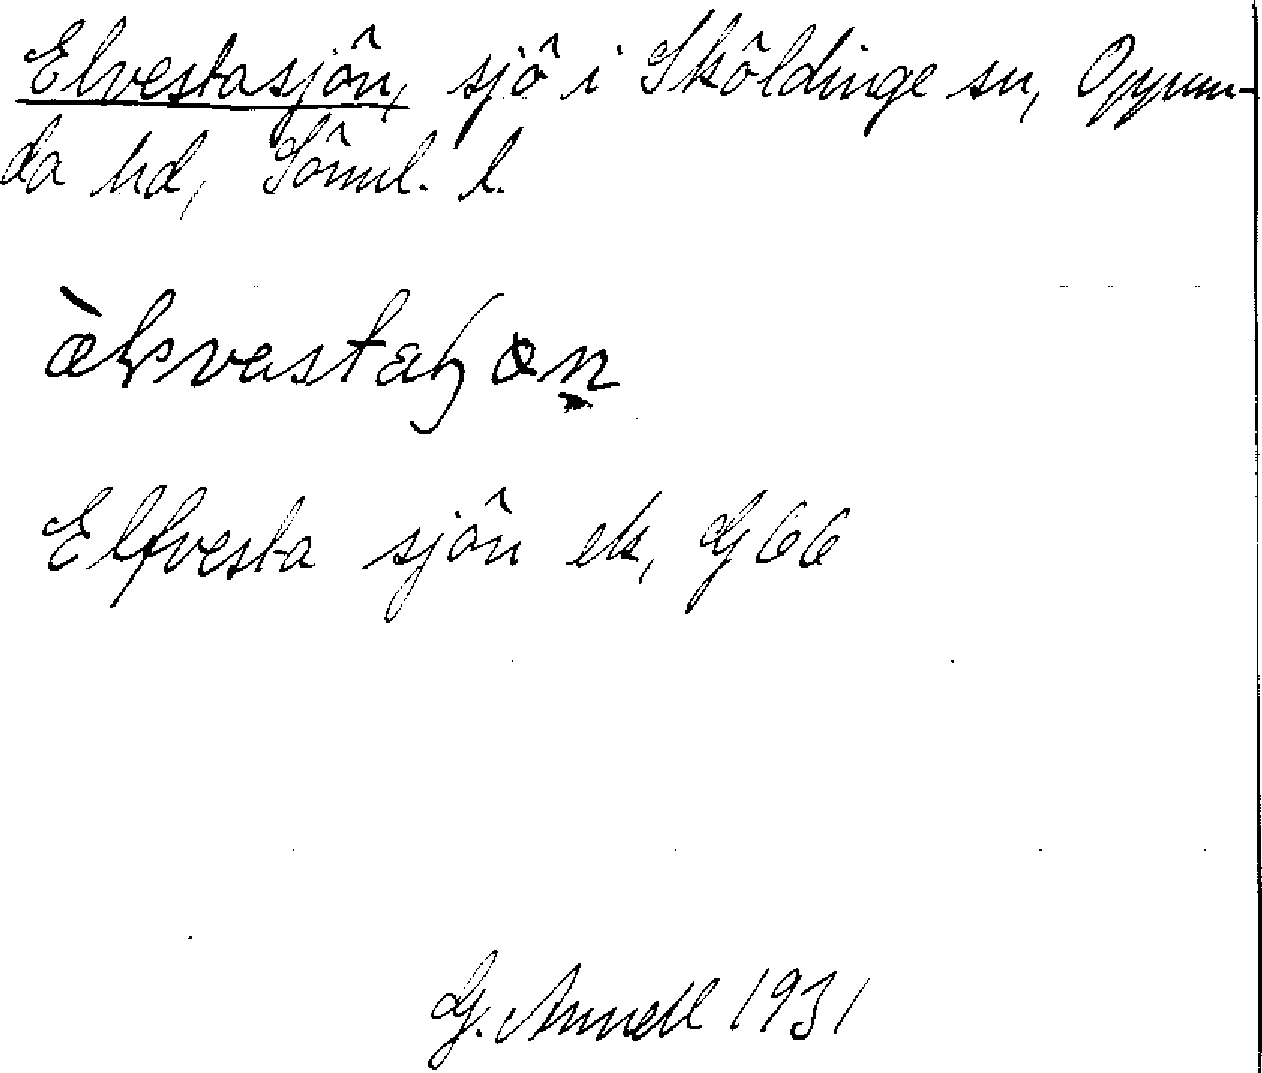 Elvestasjön, sjö i Sköldinge sn, Oppun-
da hd, Söml. l.
Elfvesta sjön ek, G 66
G. Annell 1931